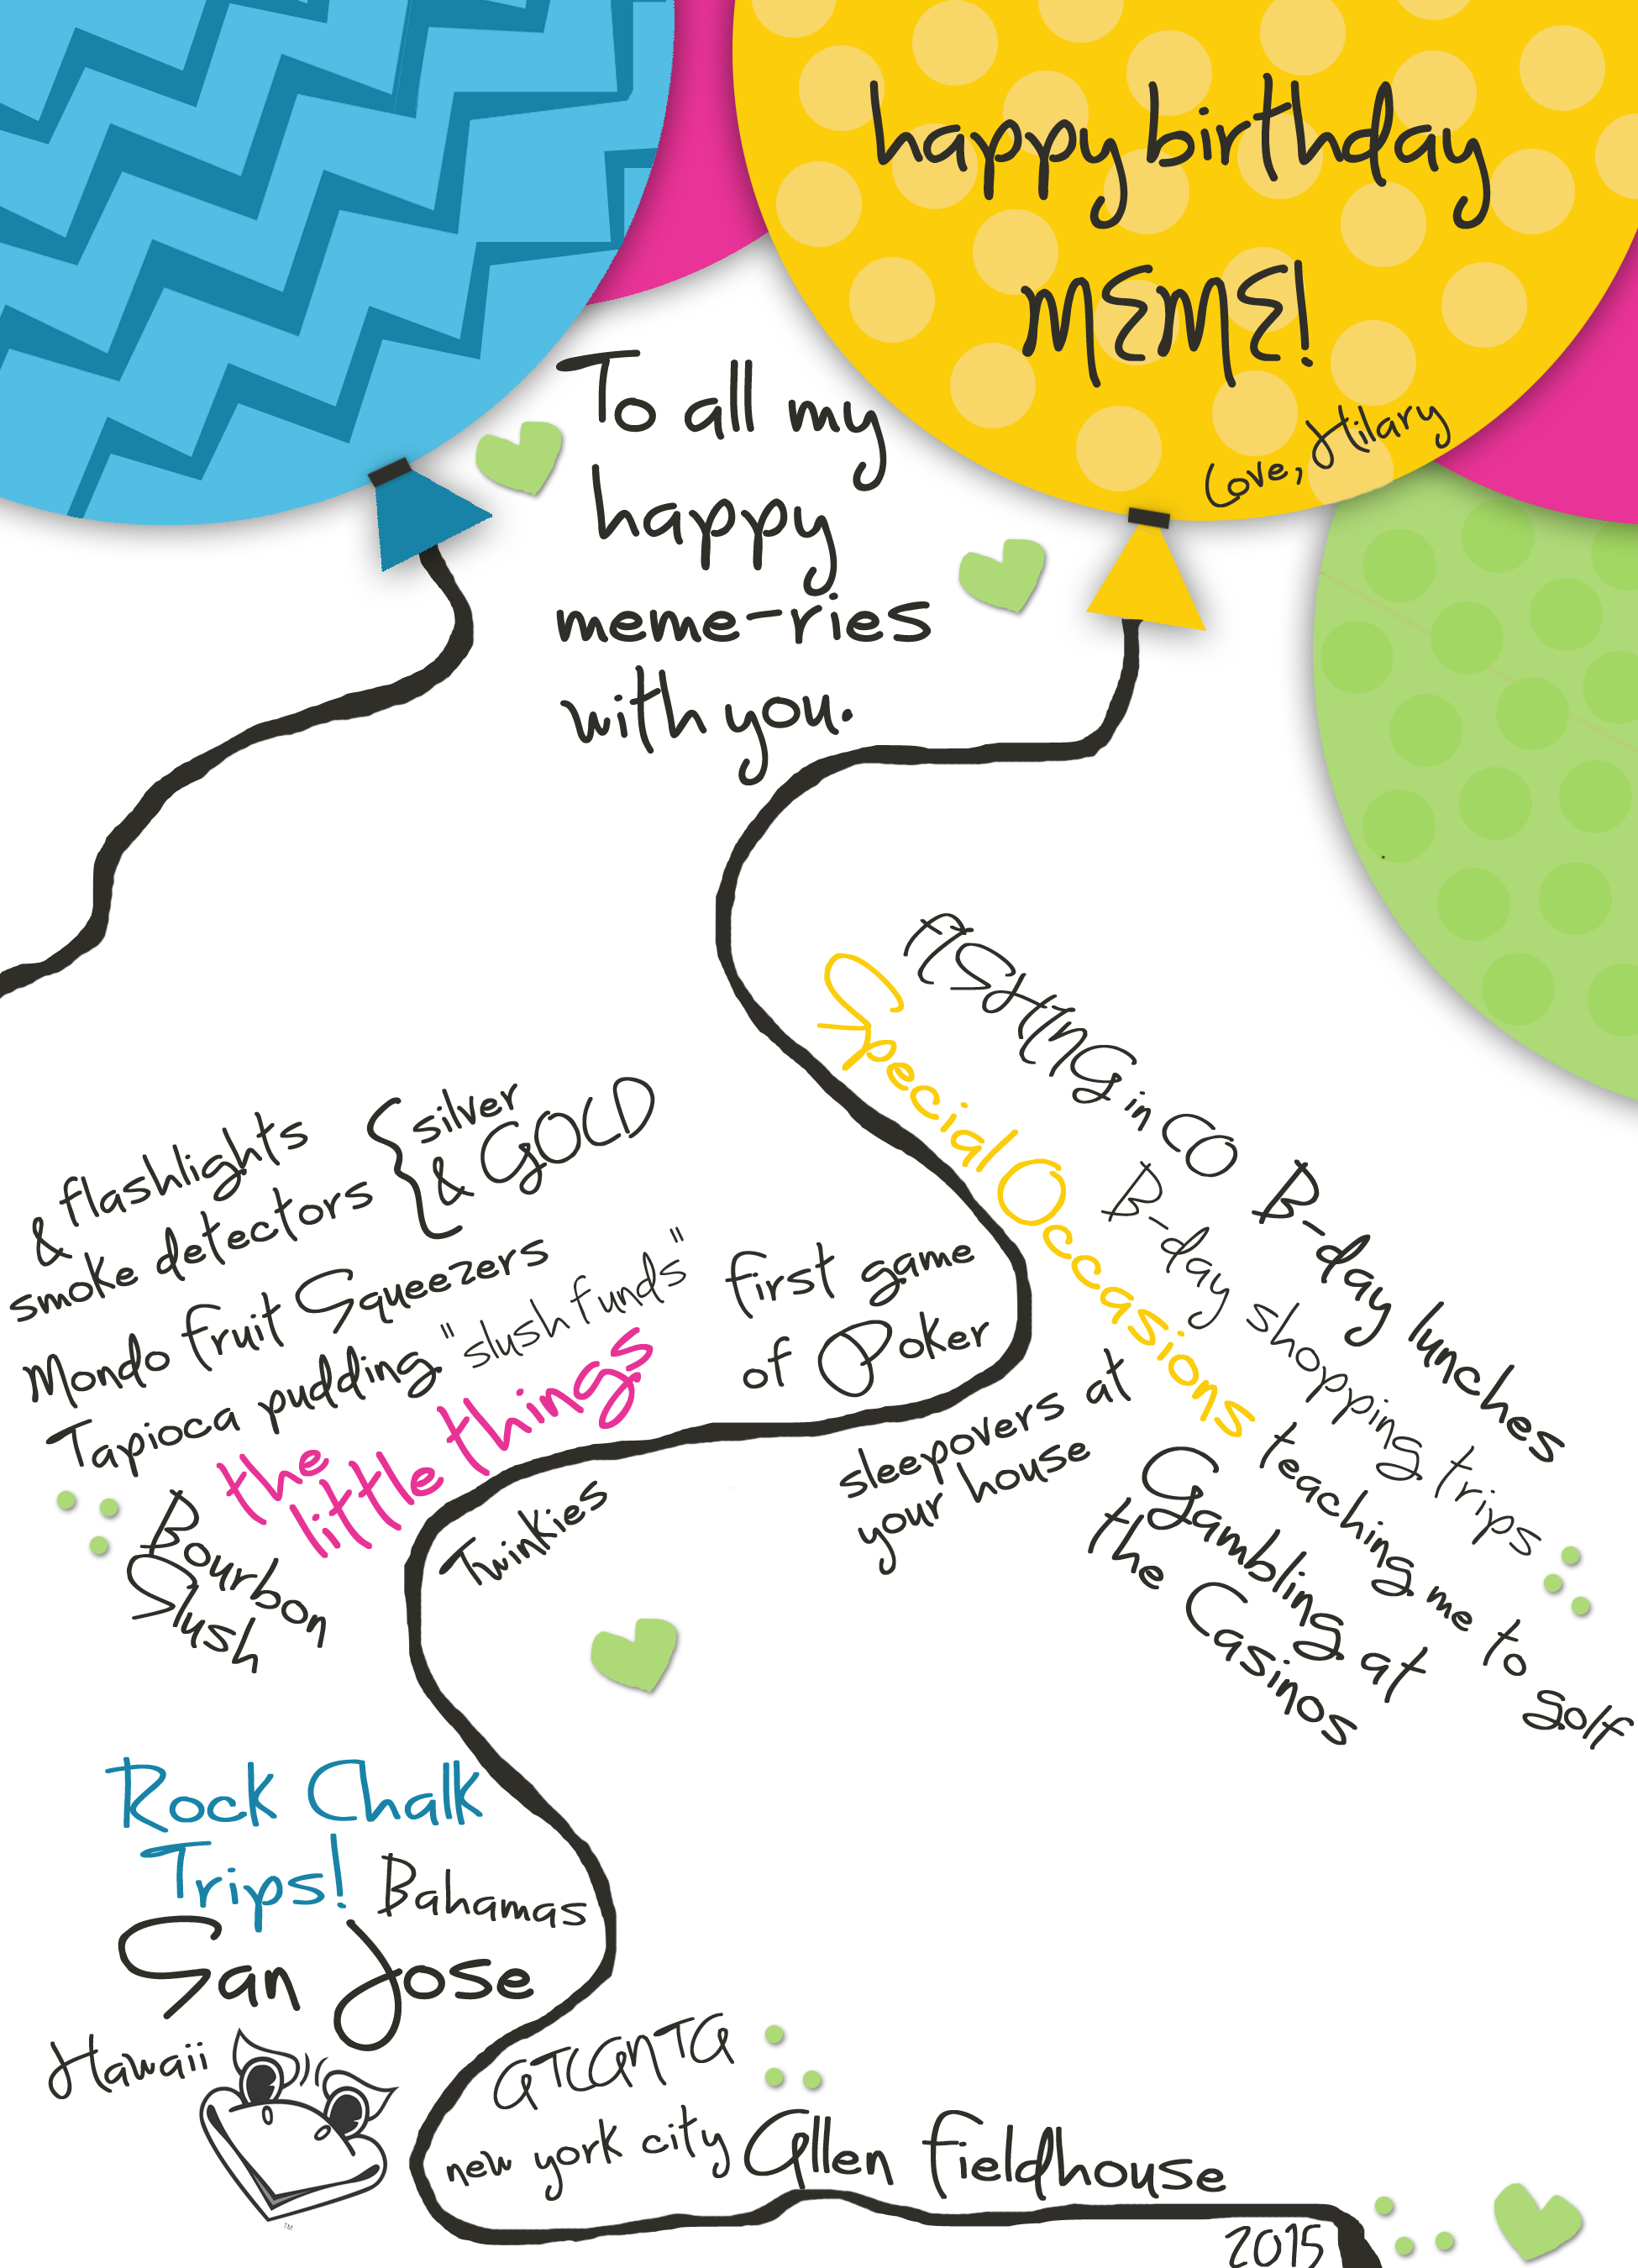 happy birthday
MEME!
Love, Hilary
To all my
happy
meme-ries
with you.
FISHING in CO
Special Occasions
B-day lunches
B-day shopping trips
teaching me to golf
Gambling at
the Casinos
sleepovers at
your house
& flashlights
smoke detectors { silver
& GOLD
Mondo Fruit Squeezers
Tapioca pudding
"slush funds"
first game
of Poker
the
little things
Bourbon
Slush
Twinkies
Rock Chalk
Trips!
Bahamas
San Jose
Hawaii
ATLANTA
new york city
Allen Fieldhouse
TM
2015